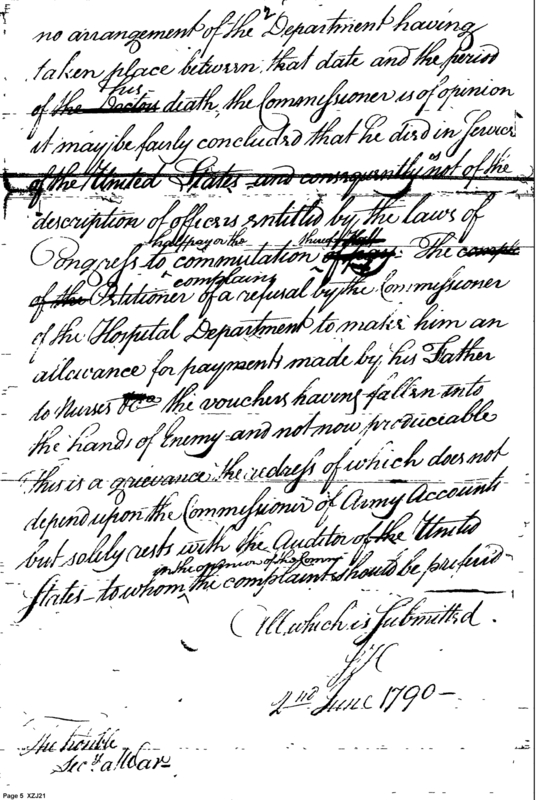 no arrangement of the Department having
taken place between that date and the period
his
of the Doctors death, the Commissioner is of opinion
it may be fairly concluded that he died in Service
as
of the United States and consequently not of the
description of officers entitled by the laws of
half pay or the thereof
Congress to commutation of pay. The
complaining
of the Petitioner of a refusal by the Commissioner
of the Hospital Department to make him an
allowance for payments made by his Father
to Nurses the vouchers having fallen into
the hands of Enemy and not now produceable
This is a grievance the redress of which does not
depend upon the Commissioner of Army Accounts
but solely rests with the Auditor of the United
in the opinion of the
States - to whom the complaint should be prefered
All which is Submitted.
2nd June 1790 -
The
Secy at War
Page 5 XZJ21